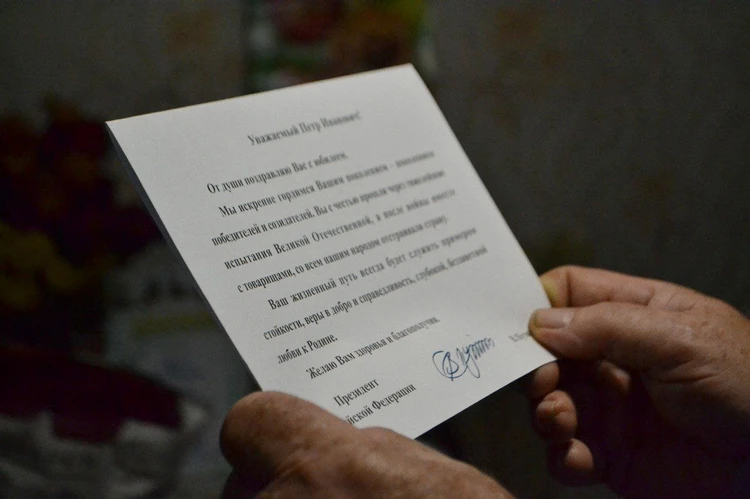 Уважаемый Петр Иванович!
От души поздравляю Вас с юбилеем.
Мы искренне гордимся Вашим поколением – поколением
победителей и созидателей. Вы с честью прошли через тяжелейшие
испытания Великой Отечественной, а после войны вместе
с товарищами, со всем нашим народом отстраивали страну.
Ваш жизненный путь всегда будет служить примером
стойкости, веры в добро и справедливость, глубокой, беззаветной
любви к Родине.
Желаю Вам здоровья и благополучия.
Президент
йской Федерации